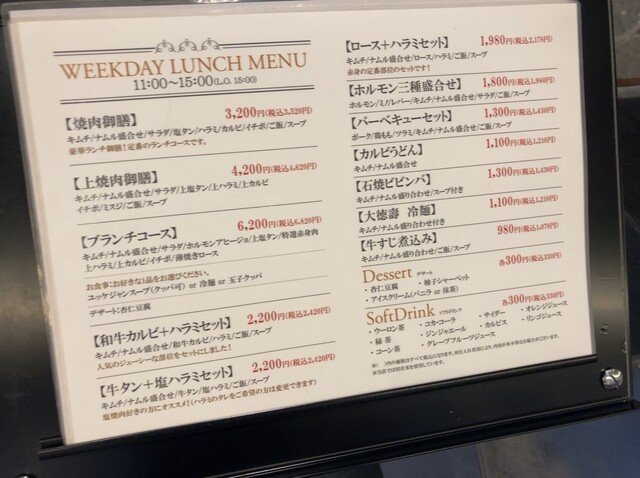 WEEKDAY LUNCH MENU
11:00〜15:00(L.O. 15:00)
【焼肉御膳】 3,200円(税込3,520円)
キムチ/ナムル盛合せ/サラダ/塩タン/ハラミ/カルビ/イチボ/ご飯/スープ
豪華ランチ御膳!定番のランチコースです。
【上焼肉御膳】 4,200円(税込4,620円)
キムチ/ナムル盛合せ/サラダ/上塩タン/上ハラミ/上カルビ
イチボ/ミスジ/ご飯/スープ
【ブランチコース】 6,200円(税込6,820円)
キムチ/ナムル盛合せ/サラダ/ホルモンアヒージョ/上塩タン/特選赤身肉
上ハラミ/上カルビ/イチボ/薄焼きロース
お食事:お好きな1品をお選びください。
ユッケジャンスープ(クッパ可) or 冷麺 or 玉子クッパ
デザート:杏仁豆腐
【和牛カルビ+ハラミセット】 2,200円(税込2,420円)
キムチ/ナムル盛合せ/和牛カルビ/ハラミ/ご飯/スープ
人気のジューシーな部位をセットにしました!
【牛タン+塩ハラミセット】 2,200円(税込2,420円)
キムチ/ナムル盛合せ/牛タン/塩ハラミ/ご飯/スープ
塩焼肉好きの方にオススメ!(ハラミのタレをご希望の方は変更できます)
【ロース+ハラミセット】 1,980円(税込2,178円)
キムチ/ナムル盛合せ/ロース/ハラミ/ご飯/スープ
赤身の定番部位のセットです!
【ホルモン三種盛合せ】 1,800円(税込1,980円)
ホルモン/ミノ/レバー/キムチ/ナムル盛合せ/サラダ/ご飯/スープ
【バーベキューセット】 1,300円(税込1,430円)
ポーク/鶏もも/ツラミ/キムチ/ナムル盛合せ/ご飯/スープ
【カルビうどん】 1,100円(税込1,210円)
キムチ/ナムル盛合せ
【石焼ビビンバ】 1,300円(税込1,430円)
キムチ/ナムル盛り合わせ/スープ付き
【大徳壽 冷麺】 1,100円(税込1,210円)
キムチ/ナムル盛り合わせ付き
【牛すじ煮込み】 980円(税込1,078円)
キムチ/ナムル盛り合わせ/ご飯/スープ
Dessert デザート 各300円(税込330円)
・杏仁豆腐 ・柚子シャーベット
・アイスクリーム(バニラ or 抹茶)
SoftDrink ソフトドリンク 各300円(税込330円)
・ウーロン茶 ・コカ・コーラ ・サイダー ・オレンジジュース
・緑 茶 ・ジンジャエール ・カルピス ・リンゴジュース
・コーン茶 ・グレープフルーツジュース